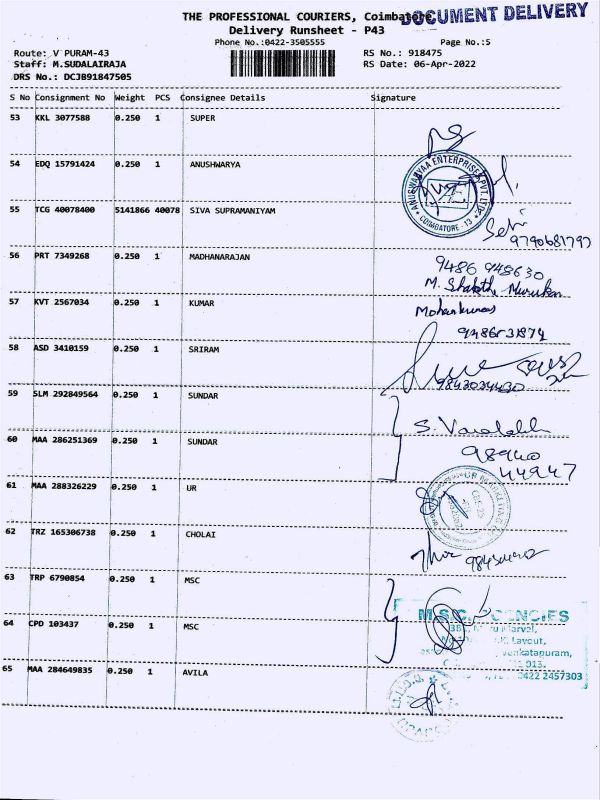 THE PROFESSIONAL COURIERS, Coimbatore
DOCUMENT DELIVERY
Delivery Runsheet - P43
Phone No.:0422-3505555
Page No.:5
Route: V PURAM-43
RS No.: 918475
Staff: M.SUDALAIRAJA
RS Date: 06-Apr-2022
DRS No.: DCJ891847505
S No Consignment No Weight PCS Consignee Details Signature
53 KKL 3077588 0.250 1 SUPER
54 EDQ 15791424 0.250 1 ANUSHWARYA
ANUSHWARYAA ENTERPRISES PVT. LTD.
COIMBATORE - 13
55 TCG 40078400 5141866 40078 SIVA SUPRAMANIYAM
9790681797
56 PRT 7349268 0.250 1 MADHANARAJAN
9486 948630
M. Shakthi Murukan
57 KVT 2567034 0.250 1 KUMAR
Mohankumar
58 ASD 3410159 0.250 1 SRIRAM
59 SLM 292849564 0.250 1 SUNDAR
60 MAA 286251369 0.250 1 SUNDAR
98940
44947
61 MAA 288326229 0.250 1 UR
62 TRZ 165306738 0.250 1 CHOLAI
63 TRP 6790854 0.250 1 MSC
64 CPD 103437 0.250 1 MSC
Layout,
0422 2457303
65 MAA 284649835 0.250 1 AVILA